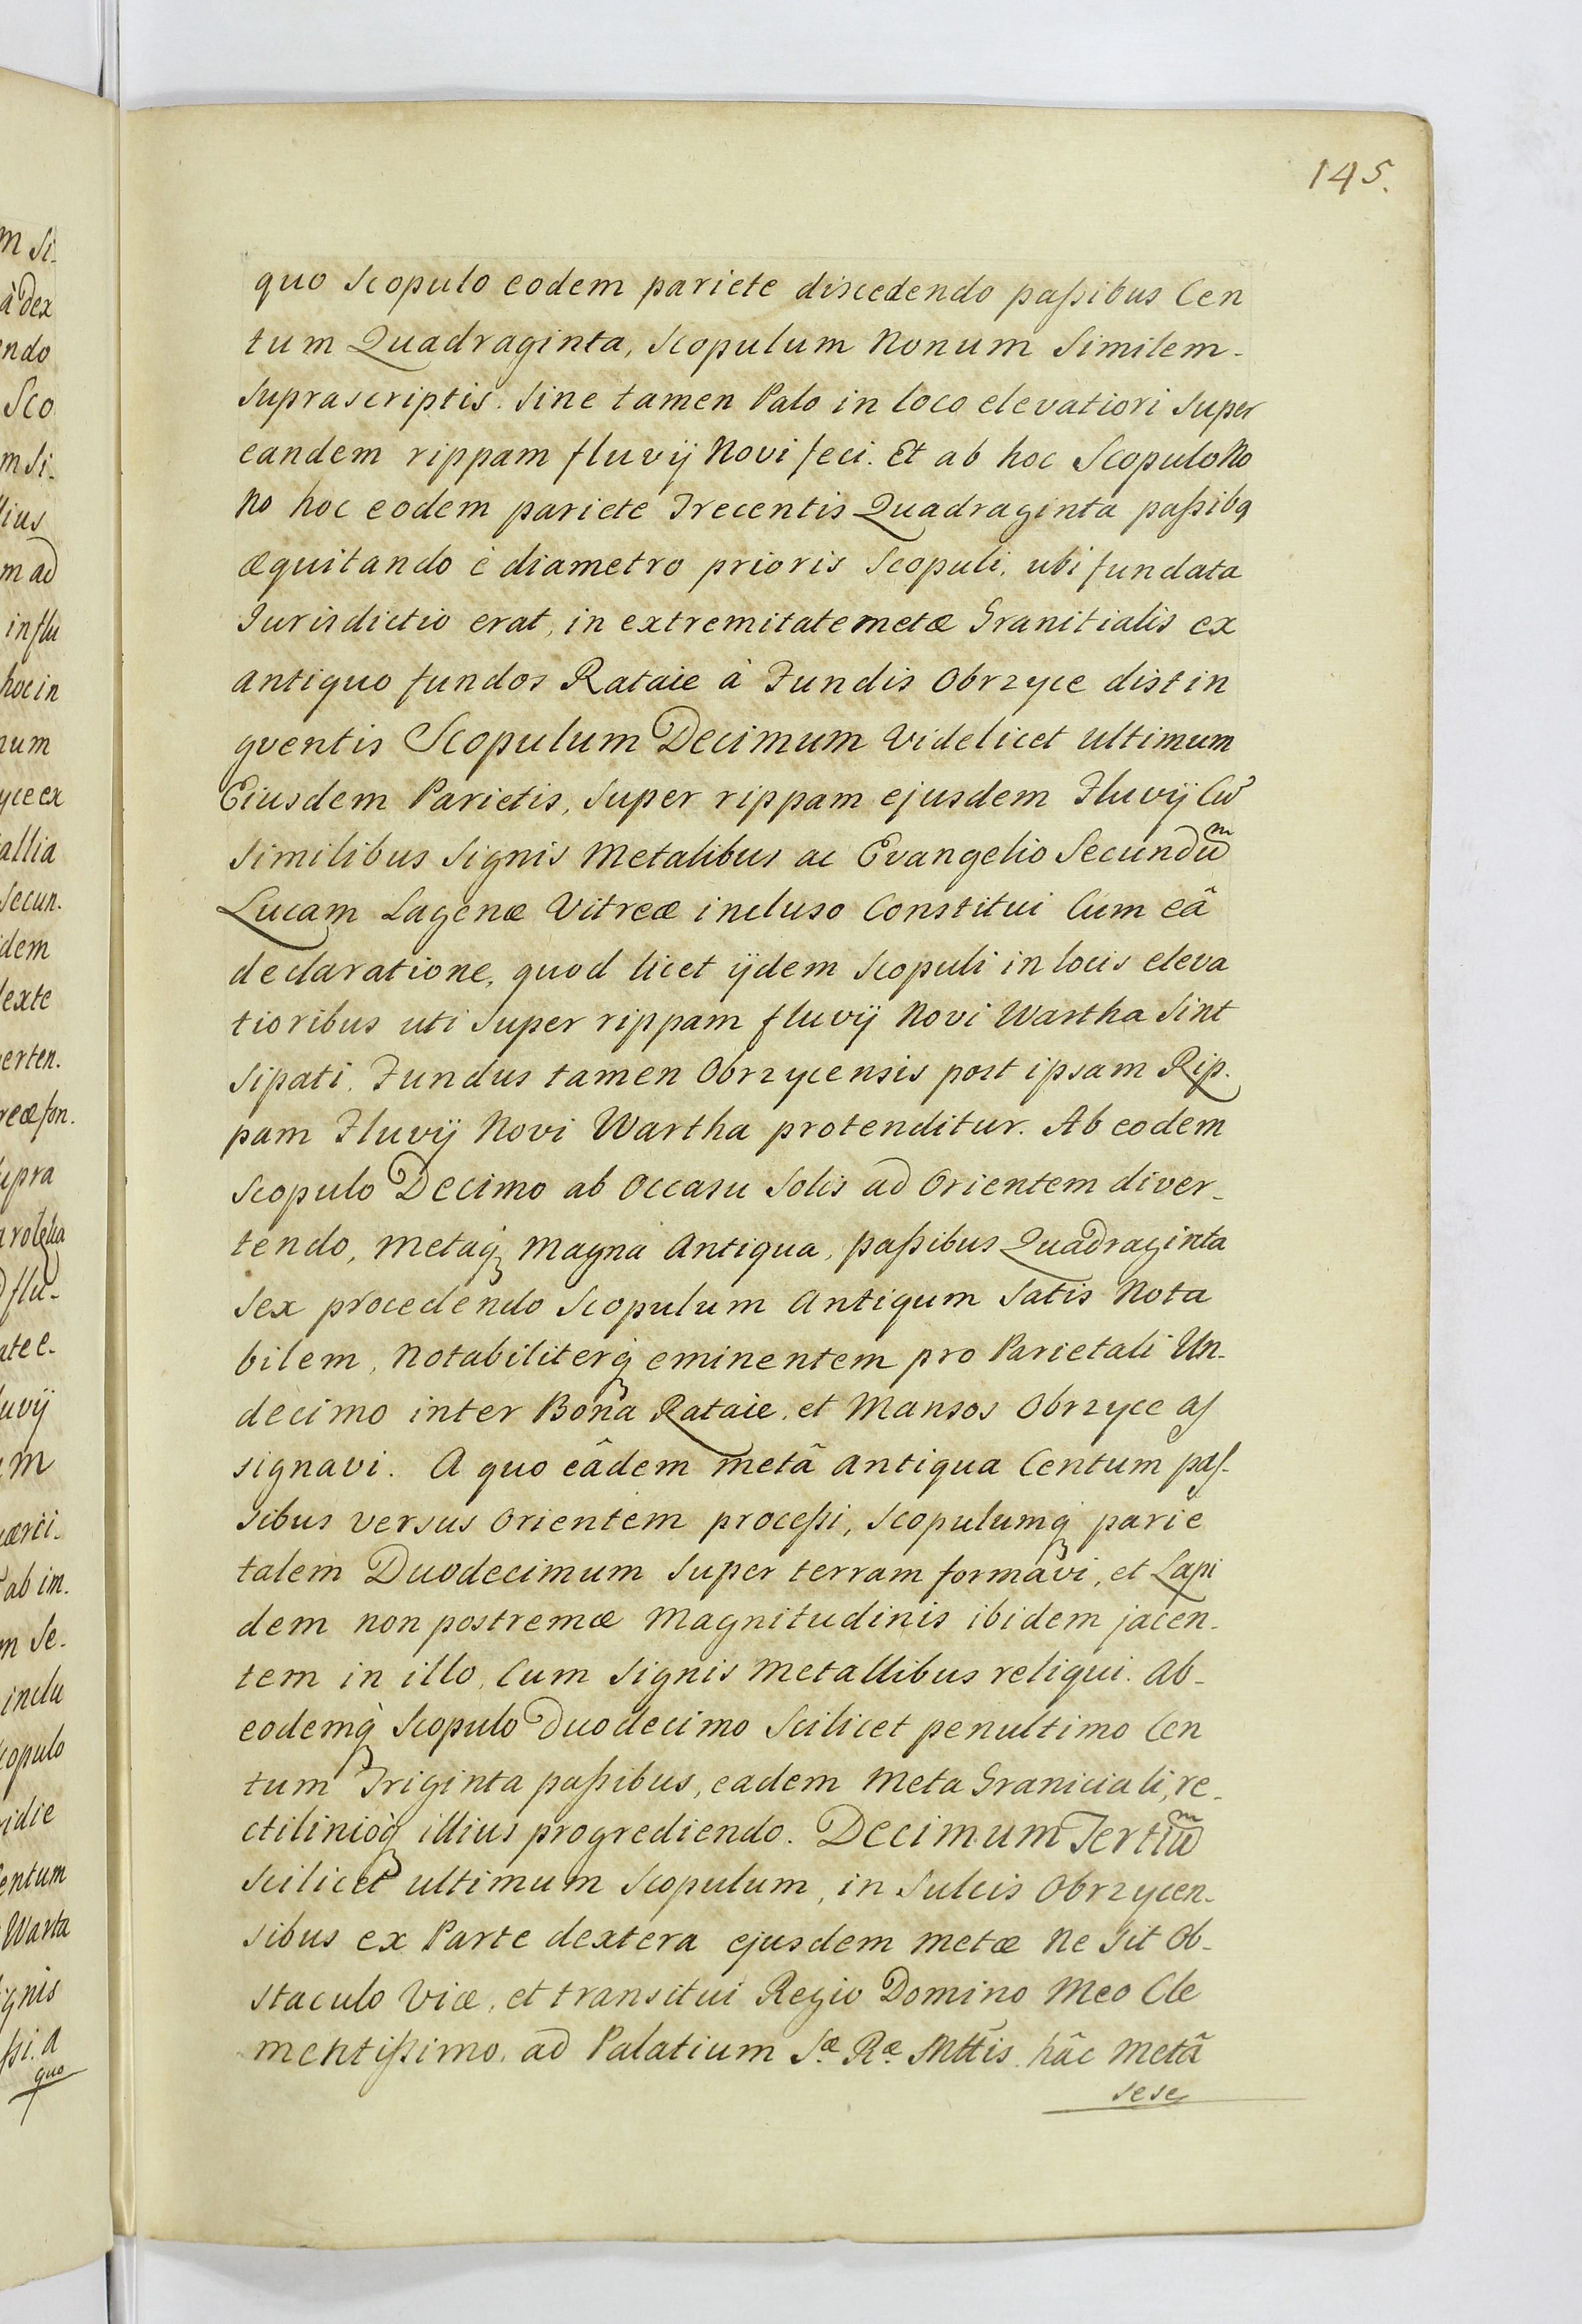 145.
quo Scopulo eodem pariete discedendo paſsibus Cen
tum Quadraginta, Scopulum Nonum Similem-
Suprascriptis. Sine tamen Palo in loco elevatiori Super
eandem rippam fluvij Novi feci. Et ab hoc Scopulo No
no hoc eodem pariete Trecentis Quadraginta paſsibq
æquitando è diametro prioris Scopuli, ubi fundata
Jurisdictio erat, in extremitate metæ Granitialis ex
antiquo fundos Rataie à Fundis Obrzyce distin
gventis Scopulum Decimum Videlicet ultimum
Eiusdem Parietis, Super rippam ejusdem Fluvij Cũ
Similibus Signis Metalibus ac Evangelio Secundũm
Lucam Lagenæ Vitreæ incluso Constitui Cum eâ
declaratione, quod licet ijdem Scopuli in locis eleva
tioribus uti Super rippam fluvij Novi Wartha Sint
Sipati. Fundus tamen Obrzycensis post ipsam Rip.
pam Fluvij Novi Wartha protenditur. Ab eodem
Scopulo Decimo ab Occasu Solis ad Orientem diver-
tendo, Metaq́ Magna Antiqua, paſsibus Quadraginta
Sex procedendo Scopulum Antiqum Satis Nota
bilem, Notabiliterq́ eminentem pro Parietali Un-
decimo inter Bona Rataie, et Mansos Obrzyce aſ
signavi. A quo eâdem metâ antiqua Centum paſ-
sibus versus Orientem proceſsi, Scopulumq́ parie
talem Duodecimum Super terram formavi, et Lapi
dem non postremæ Magnitudinis ibidem jacen-
tem in illo, Cum Signis Metallibus reliqui. Ab-
eodemq́ Scopulo Duodecimo Scilicet penultimo Cen
tum Triginta paſsibus, eadem Meta Graniciali, re-
ctilinioq́ illius progrediendo. Decimum Tertiũm
Scilicet ultimum Scopulum, in Sulcis Obrzycen-
sibus ex Parte dextera ejusdem metæ Ne Sit Ob-
staculo Viæ, et transitui Regio Domino Meo Cle
mentiſsimo, ad Palatium Sæ Ræ Mttis hâc Metâ
sese